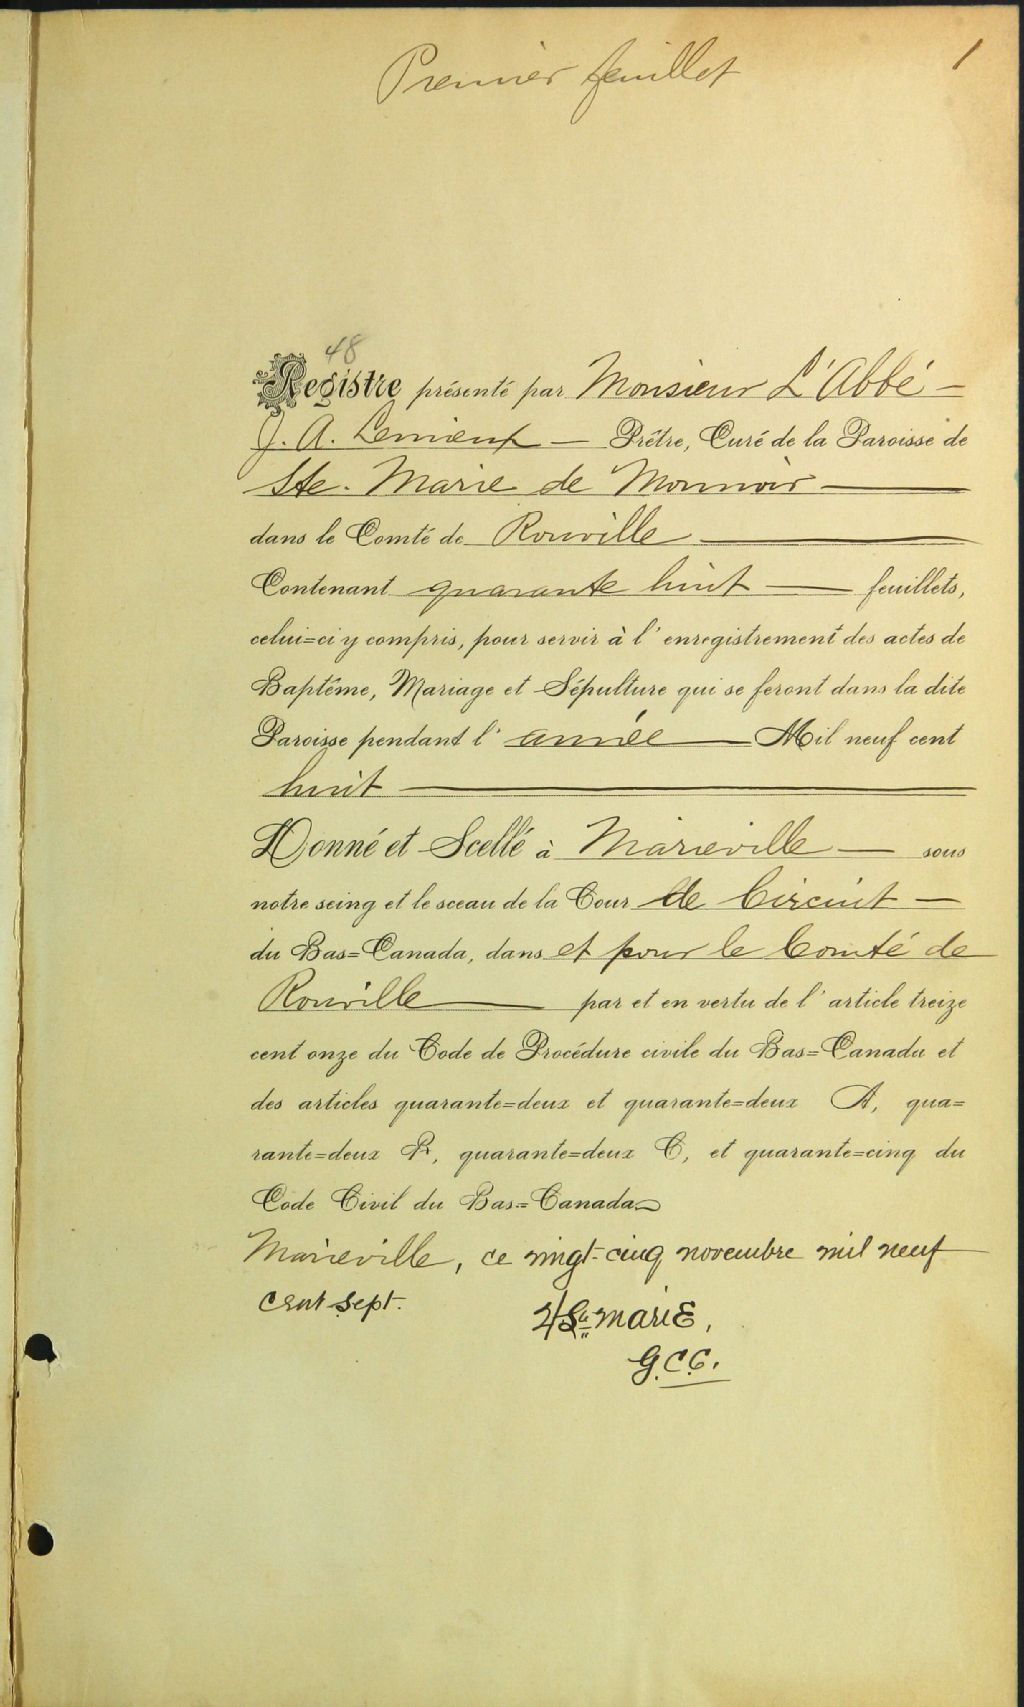 Premier feuillet
1
48
Registre présenté par Monsieur L'Abbé —
J. A. Lemieux — Prêtre, Curé de la Paroisse de
Ste. Marie de Monnoir —
dans le Comté de Rouville —
Contenant quarante huit — feuillets,
celui=ci y compris, pour servir à l'enregistrement des actes de
Baptême, Mariage et Sépulture qui se feront dans la dite
Paroisse pendant l'année — Mil neuf cent
huit —
Donné et Scellé à Marieville — sous
notre seing et le sceau de la Cour de Circuit —
du Bas=Canada, dans et pour le Comté de
Rouville — par et en vertu de l'article treize
cent onze du Code de Procédure civile du Bas=Canada et
des articles quarante=deux et quarante=deux A, qua=
rante=deux B, quarante=deux C, et quarante=cinq du
Code Civil du Bas=Canada
Marieville, ce vingt-cinq novembre mil neuf
cent sept.
Ste marie,
G.C.C.